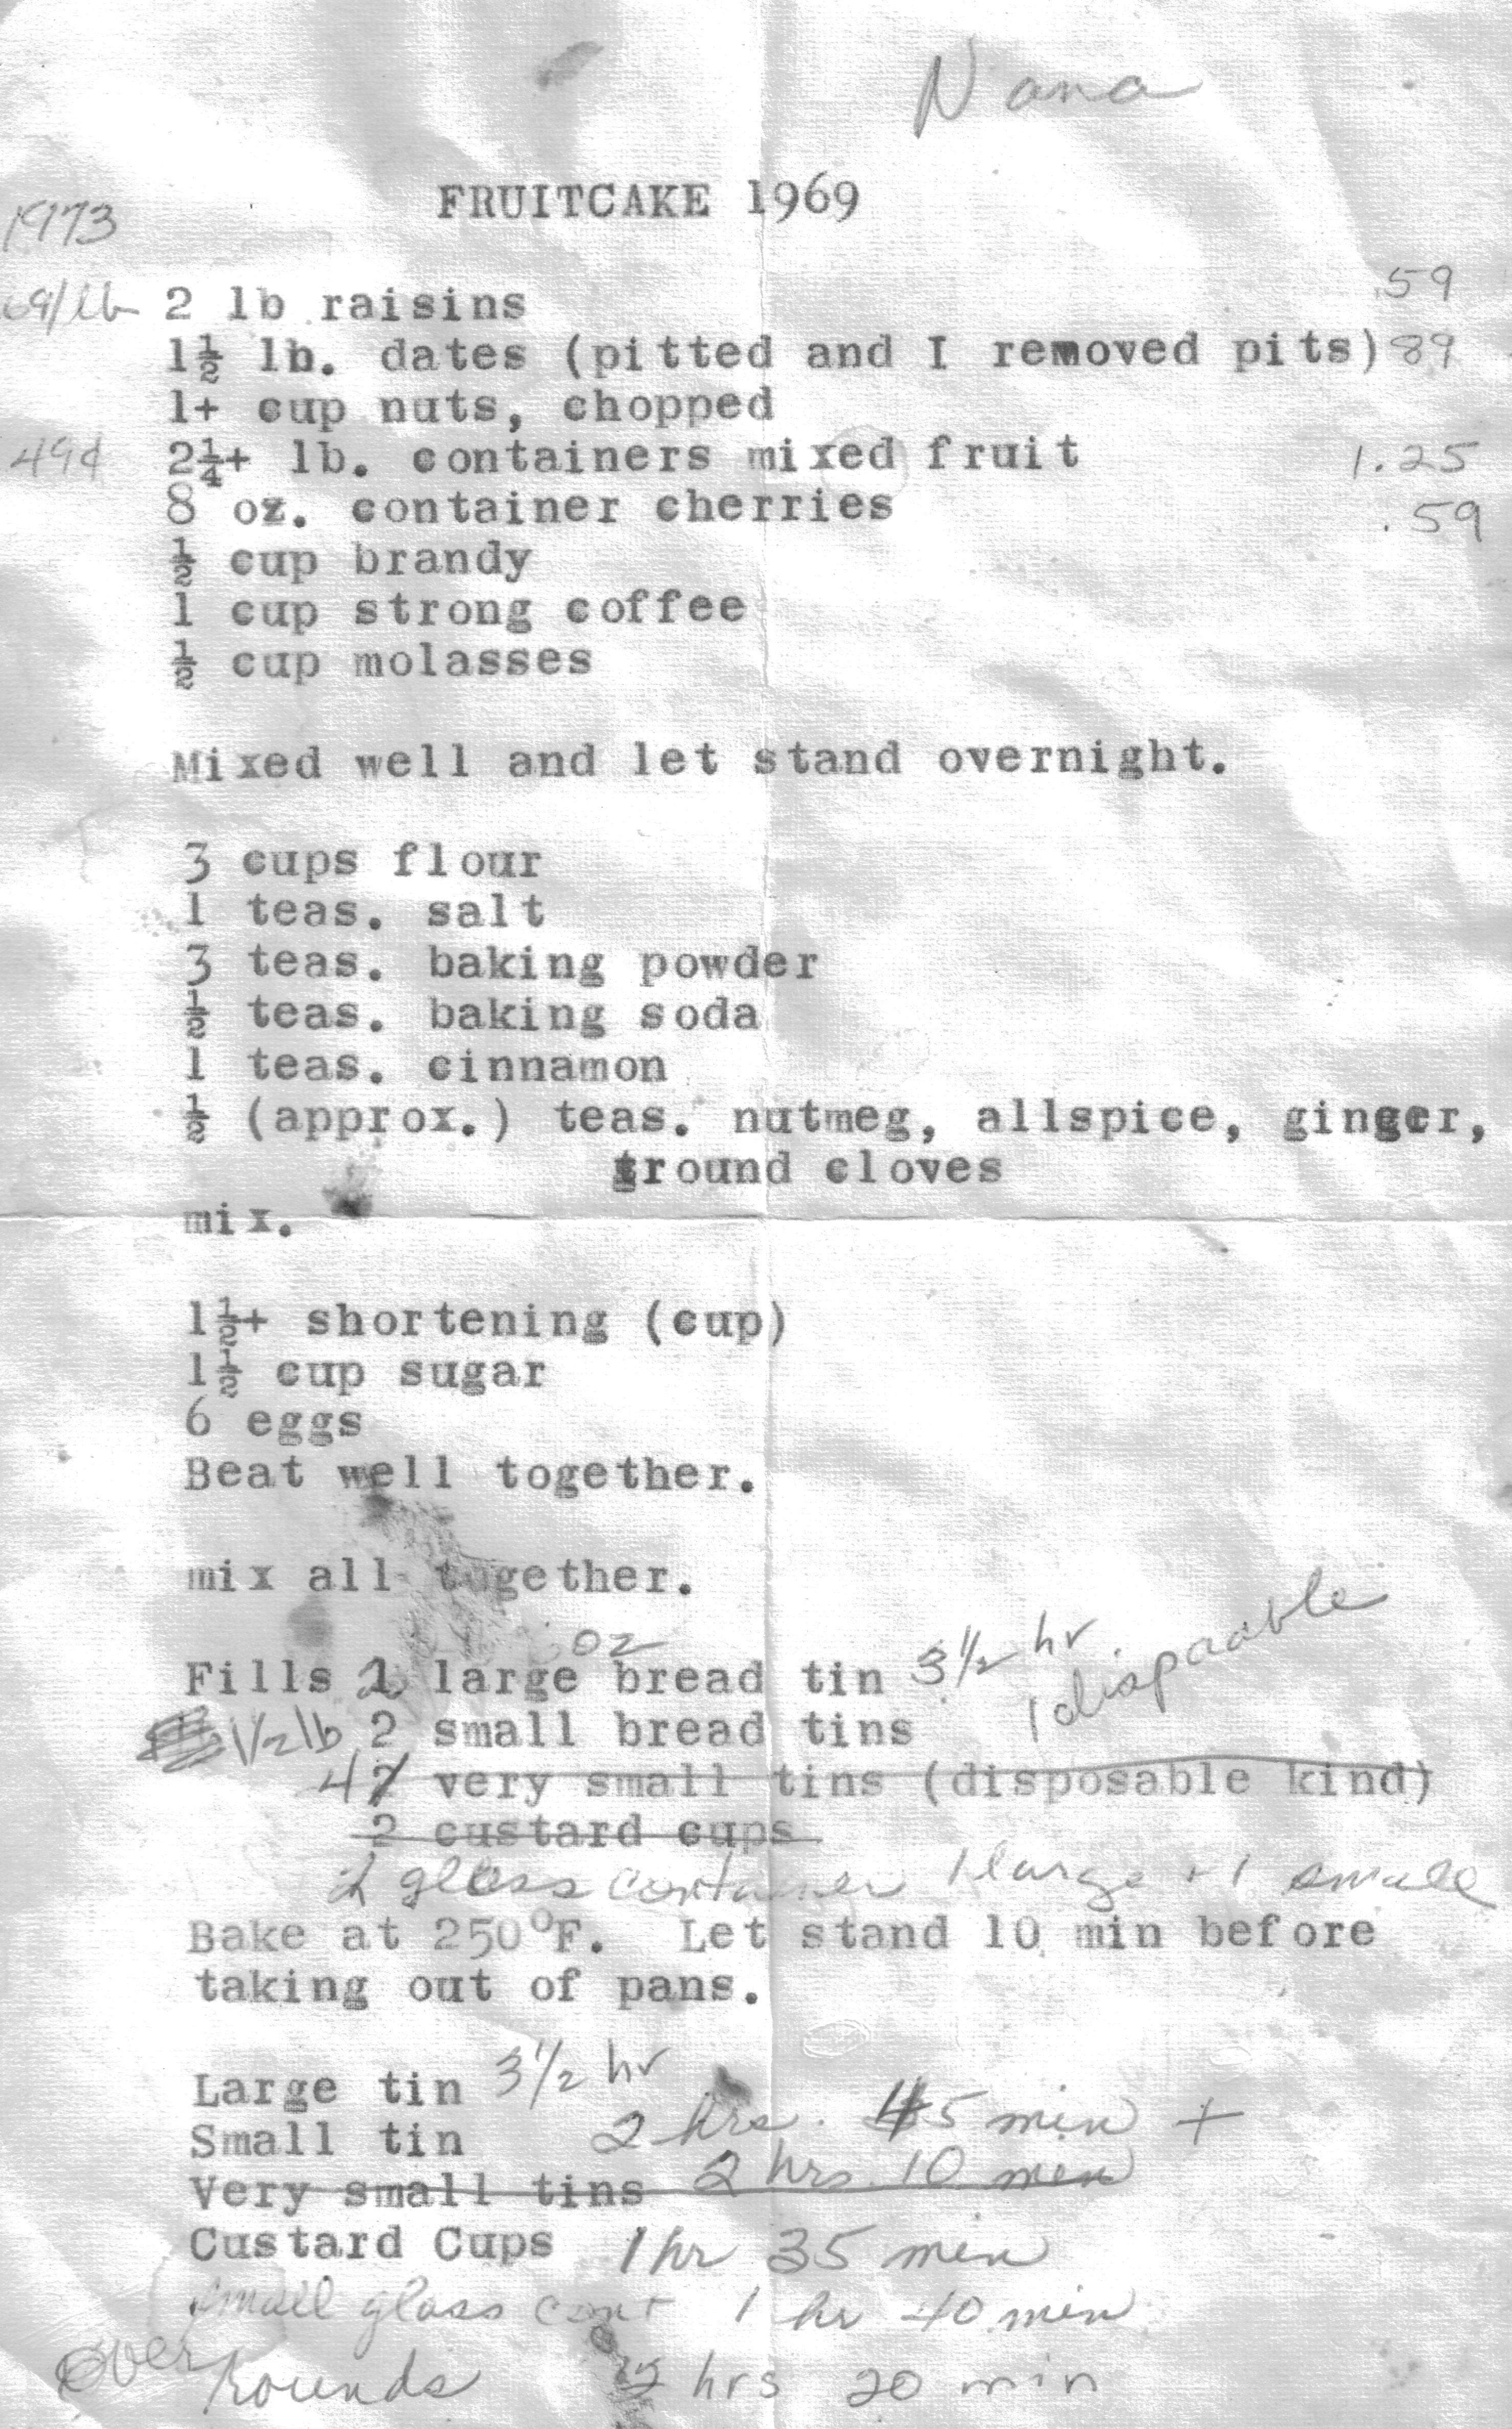 Nana
FRUITCAKE 1969
1973
69/lb 2 lb raisins .59
1½ lb. dates (pitted and I removed pits) 89
1+ cup nuts, chopped
49¢ 2¼+ lb. containers mixed fruit 1.25
8 oz. container cherries .59
½ cup brandy
1 cup strong coffee
½ cup molasses
Mixed well and let stand overnight.
3 cups flour
1 teas. salt
3 teas. baking powder
½ teas. baking soda
1 teas. cinnamon
½ (approx.) teas. nutmeg, allspice, ginger,
ground cloves
mix.
1½+ shortening (cup)
1½ cup sugar
6 eggs
Beat well together.
mix all together.
oz
Fills 2 large bread tin 3½ hr.
1 dispoable
1/2 lb 2 small bread tins
4 2 very small tins (disposable kind)
2 custard cups
2 glass container 1 large + 1 small
Bake at 250°F. Let stand 10 min before
taking out of pans.
Large tin 3½ hr
Small tin 2 hrs. 45 min +
Very small tins 2 hrs. 10 min
Custard Cups 1 hr 35 min
small glass cont 1 hr 40 min
over
rounds 2 hrs 20 min